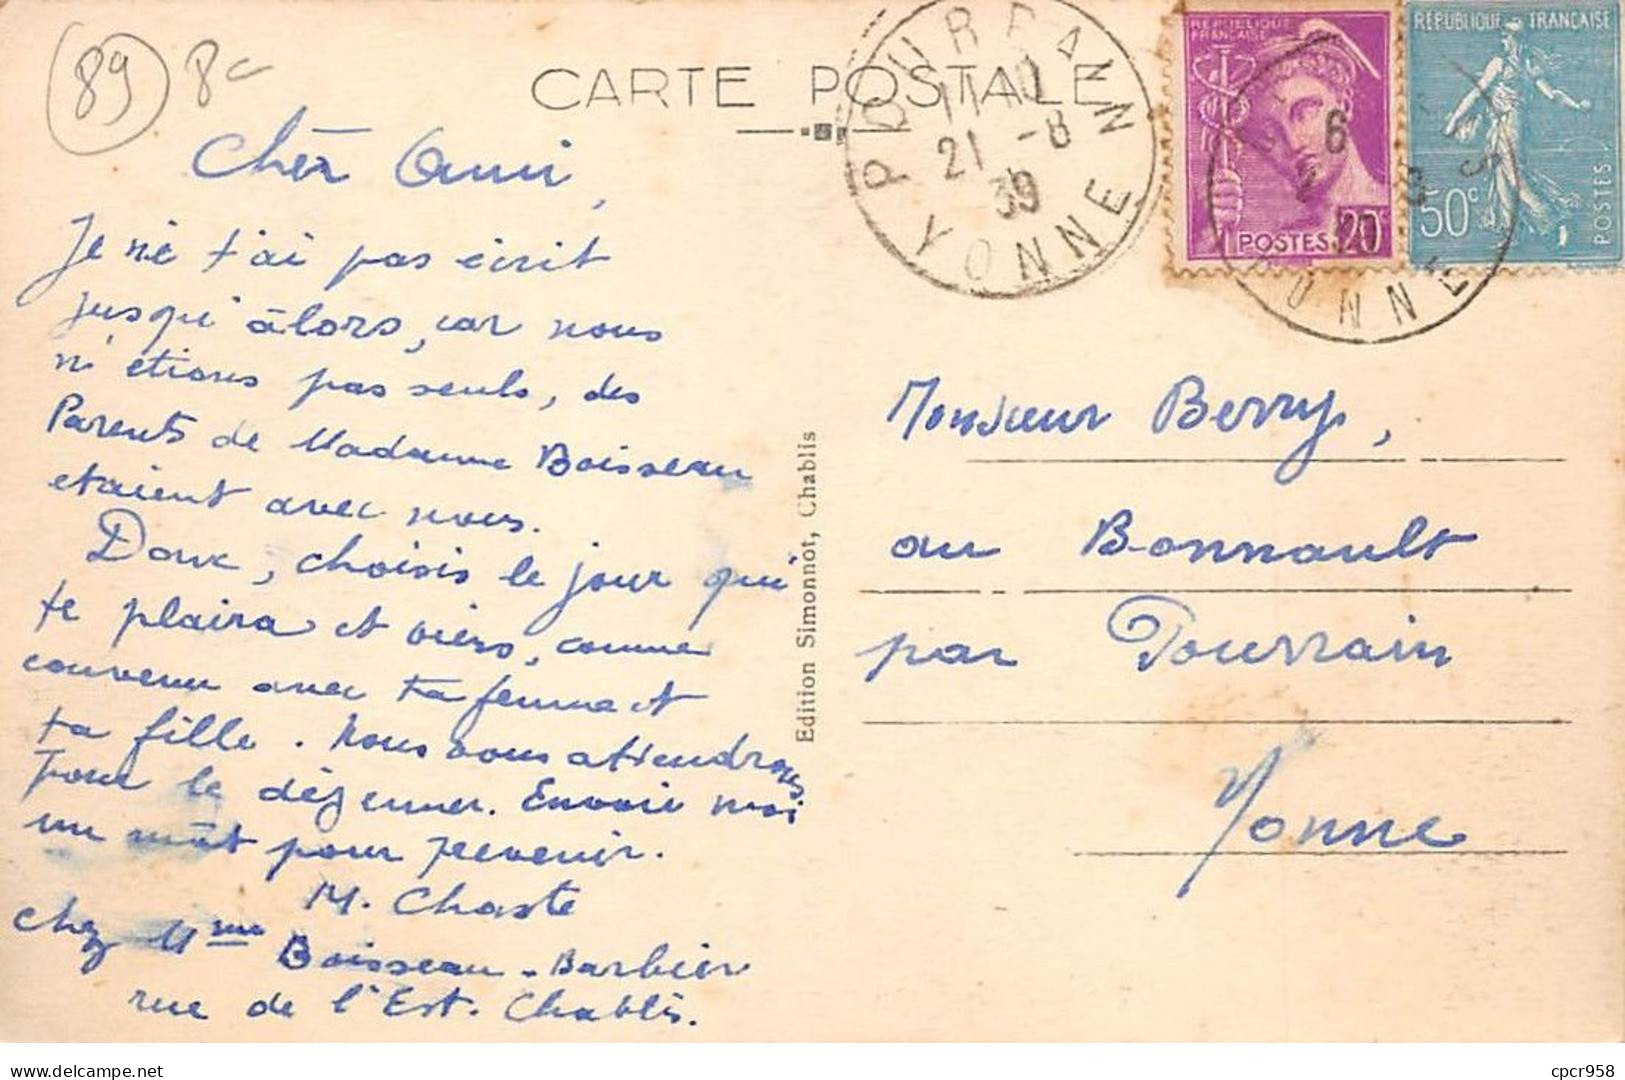 89 8c
CARTE POSTALE
POURRAIN
11-10
21-8
39
YONNE
REPUBLIQUE
FRANCAISE
POSTES 20c
REPUBLIQUE FRANCAISE
50c
POSTES
YONNE
Cher Ami,
Je ne t'ai pas écrit
jusqu'àlors, car nous
n'étions pas seuls, des
Parents de Madame Boisseau
etaient avec nous.
Donc, choisis le jour qui
te plaira et viens, comme
convenu avec ta femme et
ta fille. Nous vous attendrons
pour le déjeuner. Envoie moi
un môt pour prevenir.
M. Chaste
chez Mme Boisseau-Barbier
rue de l'Est. Chablis.
Edition Simonnot, Chablis
Monsieur Berry,
au Bonnault
par Pourrain
Yonne
cpcr958